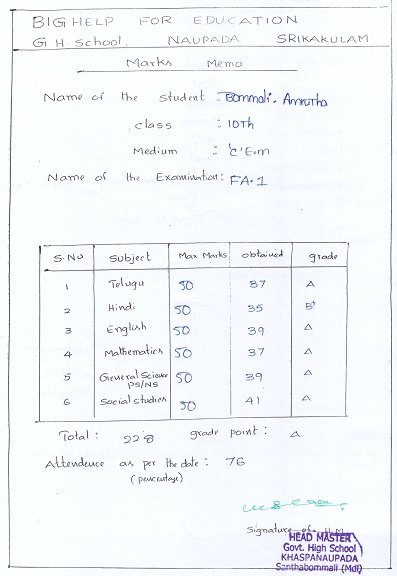 BIG HELP FOR EDUCATION
G H School, NAUPADA SRIKAKULAM
Marks Memo
Name of the Student : Bommali. Amrutha
class : 10Th
Medium : 'C' E.m
Name of the Examination : FA-1
S.NO Subject Max Marks obtained grade
1 Telugu 50 37 A
2 Hindi 50 35 B+
3 English 50 39 A
4 Mathematics 50 37 A
5 General Science PS/NS 50 39 A
6 Social studies 50 41 A
Total : 228 grade point : A
Attendence as per the date : 76
(percentage)
Signature of H.M
HEAD MASTER
Govt. High School
KHASPANAUPADA
Santhabommali (Mdl)